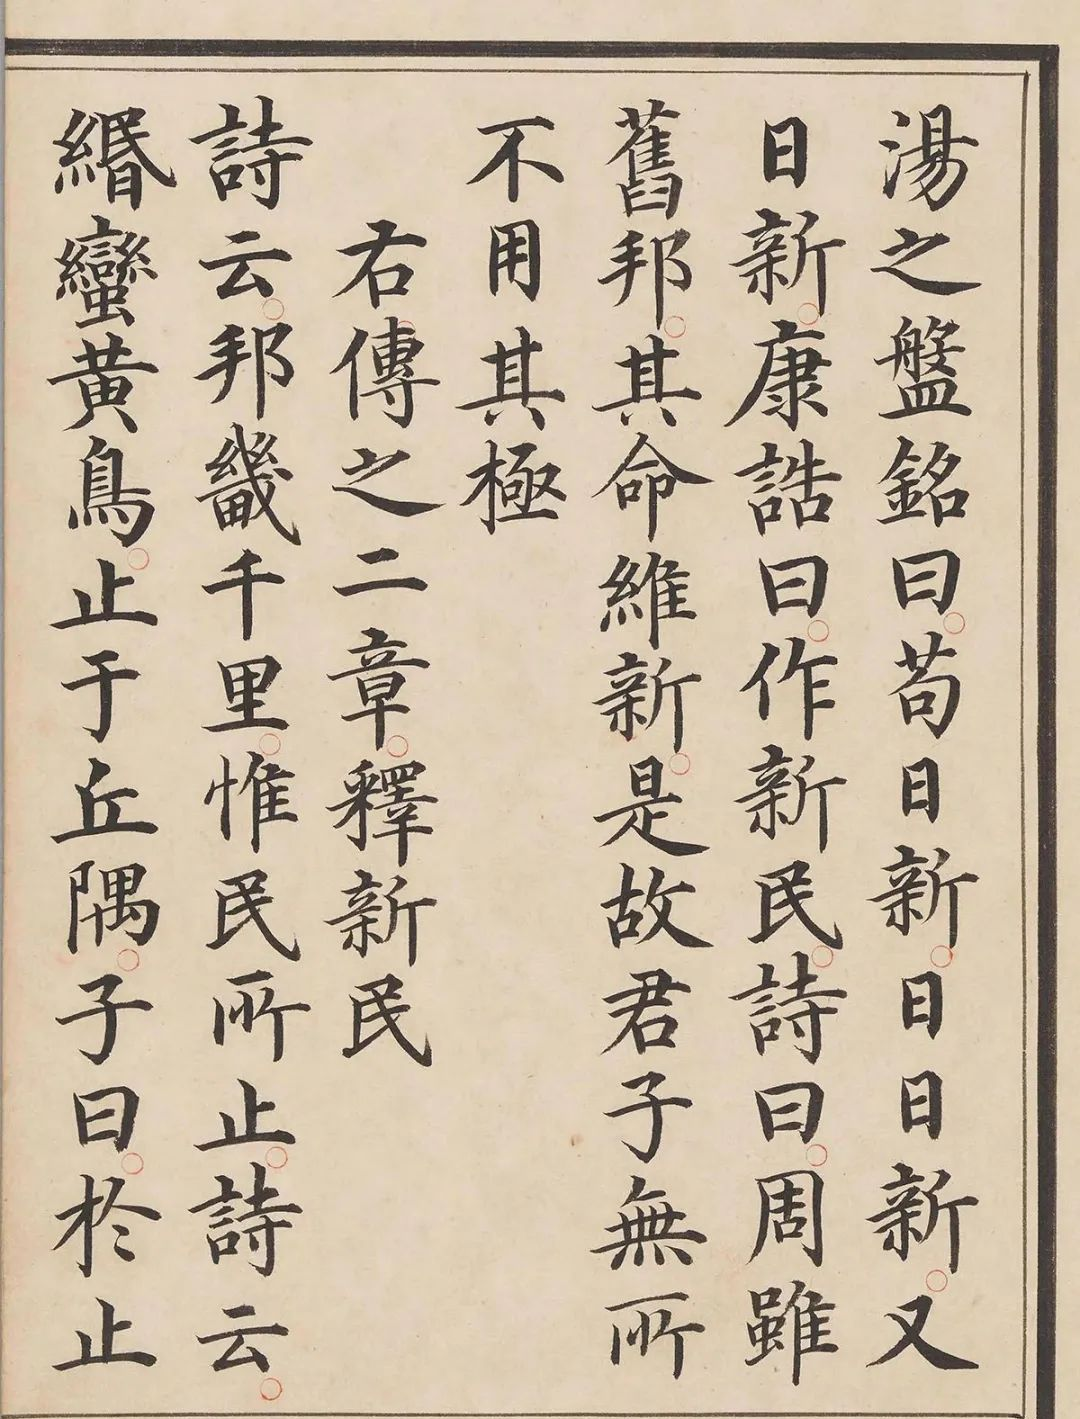 湯之盤銘曰苟日新日日新又
日新康誥曰作新民詩曰周雖
舊邦其命維新是故君子無所
不用其極
右傳之二章釋新民
詩云邦畿千里惟民所止詩云
緡蠻黃鳥止于丘隅子曰於止